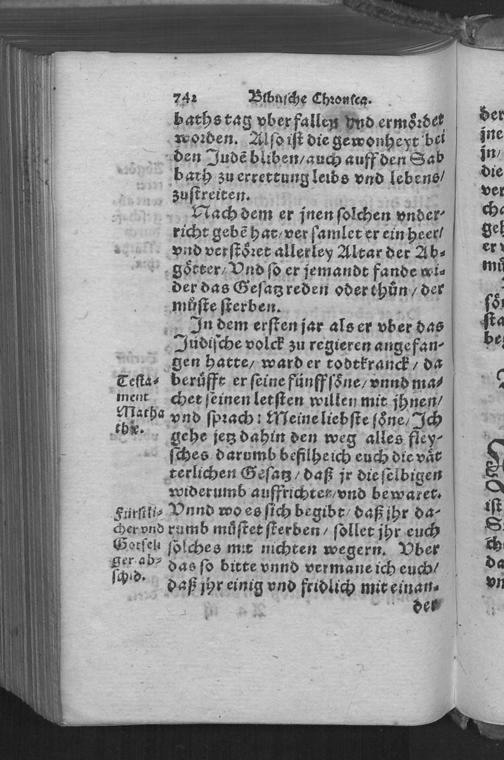 742 Biblische Chronica.
baths tag vberfallen vnd ermördet
worden. Also ist die gewonheyt bei
den Judē bliben/auch auff den Sab
bath zu errettung leibs vnd lebens/
zustreiten.
Nach dem er jnen solchen vnder-
richt gebē hat/versamlet er ein heer/
vnd verstöret allerley Altar der Ab-
götter/Vnd so er jemandt fande wi-
der das Gesatz reden oder thůn/der
můste sterben.
In dem ersten jar als er vber das
Jüdische volck zu regieren angefan-
gen hatte/ ward er todtkranck/ da
berüfft er seine fünff söne/vnnd ma-
chet seinen letsten willen mit jhnen/
vnd sprach: Meine liebste söne/Ich
gehe jetz dahin den weg alles fley-
sches darumb befilhe ich euch die vät
terlichen Gesatz/daß jr dieselbigen
widerumb auffrichtet/vnd bewaret.
Vnnd wo es sich begibt/daß jhr da-
rumb müstet sterben/sollet jhr euch
solches mit nichten wegern. Vber
das so bitte vnnd vermane ich euch/
daß jhr einig vnd fridlich mit einan-
der
Testa-
ment
Matha
thiæ.
Fürstli-
cher vnd
Gotseli
ger ab-
schid.
der
jne
jn/
die
ver
cha
geh
er v
mü
sön
sta
be
ist
ch
da
vn